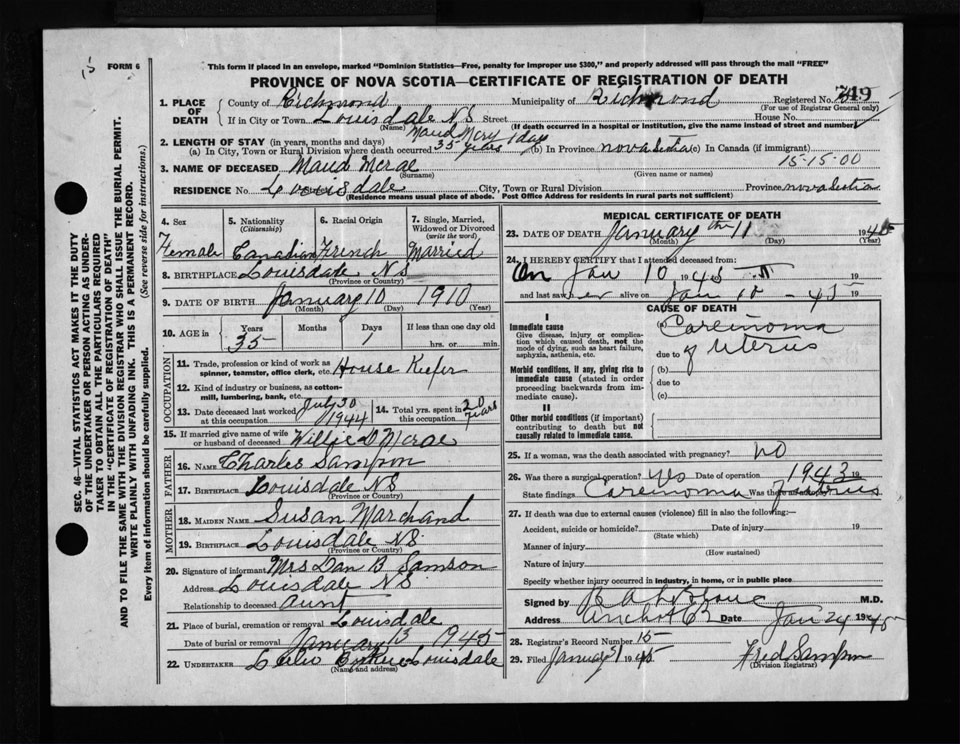 FORM 6
This form if placed in an envelope, marked "Dominion Statistics—Free, penalty for improper use $300," and properly addressed will pass through the mail "FREE"
PROVINCE OF NOVA SCOTIA—CERTIFICATE OF REGISTRATION OF DEATH
1. PLACE OF DEATH
County of Richmond Municipality of Richmond Registered No.
(For use of Registrar General only)
If in City or Town Louisdale N S Street House No.
(Name) (If death occurred in a hospital or institution, give the name instead of street and number)
2. LENGTH OF STAY (in years, months and days)
(a) In City, Town or Rural Division where death occurred 35 years 1 day (b) In Province nova Scotia (c) In Canada (if immigrant)
15-15-00
3. NAME OF DECEASED Maud Mcrae
(Surname) (Given name or names)
RESIDENCE No. Louisdale City, Town or Rural Division Province nova Scotia
(Residence means usual place of abode. Post Office Address for residents in rural parts not sufficient)
SEC. 46—VITAL STATISTICS ACT MAKES IT THE DUTY
OF THE UNDERTAKER OR PERSON ACTING AS UNDER-
TAKER TO OBTAIN ALL THE PARTICULARS REQUIRED
IN THE "CERTIFICATE OF REGISTRATION OF DEATH"
AND TO FILE THE SAME WITH THE DIVISION REGISTRAR WHO SHALL ISSUE THE BURIAL PERMIT.
WRITE PLAINLY WITH UNFADING INK. THIS IS A PERMANENT RECORD.
Every item of information should be carefully supplied. (See reverse side for instructions.)
4. Sex
Female
5. Nationality
(Citizenship)
Canadian
6. Racial Origin
French
7. Single, Married, Widowed or Divorced
(write the word)
Married
8. BIRTHPLACE Louisdale N S
(Province or Country)
9. DATE OF BIRTH January 10 1910
(Month) (Day) (Year)
10. AGE in Years Months Days If less than one day old
35 1 hrs. or min.
OCCUPATION
11. Trade, profession or kind of work as spinner, teamster, office clerk, etc. House Keefer
12. Kind of industry or business, as cotton-mill, lumbering, bank, etc.
13. Date deceased last worked at this occupation July 30 1944
14. Total yrs. spent in this occupation 20 years
15. If married give name of wife or husband of deceased Willie D Mcrae
FATHER
16. NAME Charles Sampson
17. BIRTHPLACE Louisdale N S
MOTHER
18. MAIDEN NAME Susan Marchand
19. BIRTHPLACE Louisdale N S.
(Province or Country)
20. Signature of informant Mrs Dan B Samson
Address Louisdale N S
Relationship to deceased Aunt
21. Place of burial, cremation or removal Louisdale
Date of burial or removal January 13 1945
22. UNDERTAKER Louisdale
(Name and address)
MEDICAL CERTIFICATE OF DEATH
23. DATE OF DEATH January th 11 1945
(Month) (Day) (Year)
24. I HEREBY CERTIFY that I attended deceased from:
on Jan 10 1945 19
and last saw her alive on Jan 10 - 45 19
CAUSE OF DEATH
I
Immediate cause
Give disease, injury or complication which caused death, not the mode of dying, such as heart failure, asphyxia, asthenia, etc.
(a) Carcinoma
due to of Uterus
Morbid conditions, if any, giving rise to immediate cause (stated in order proceeding backwards from immediate cause).
(b)
due to
(c)
II
Other morbid conditions (if important) contributing to death but not causally related to immediate cause.
25. If a woman, was the death associated with pregnancy? no
26. Was there a surgical operation? yes Date of operation 1943 19
State findings Carcinoma of uterus Was there autopsy?
27. If death was due to external causes (violence) fill in also the following:—
Accident, suicide or homicide? Date of injury 19
(State which)
Manner of injury
(How sustained)
Nature of injury
Specify whether injury occurred in industry, in home, or in public place
Signed by M.D.
Address Date Jan 24 1945
28. Registrar's Record Number 15
29. Filed January 31 1945 Fred Sampson
(Division Registrar)